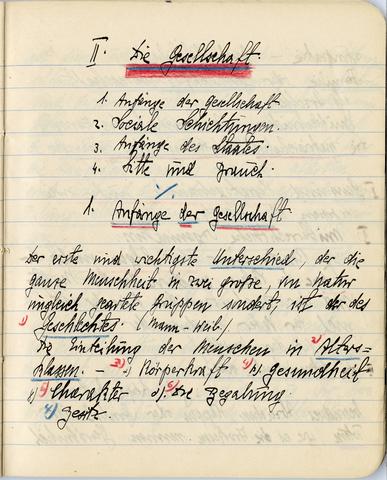 II. Die Gesellschaft.
1. Anfänge der Gesellschaft
2. Sociale Schichtungen.
3. Anfänge des Staates.
4. Sitte und Brauch.
1. Anfänge der Gesellschaft
Der erste und wichtigste Unterschied, der die
ganze Menschheit in zwei große, von Natur
ungleich geartete Gruppen sondert, ist der des
1) Geschlechtes. (Mann - Weib.)
Die Einteilung der Menschen in 2) Alters=
klassen. - Körperkraft b) Gesundheit
c) Charakter d) die Begabung.
4) Besitz.